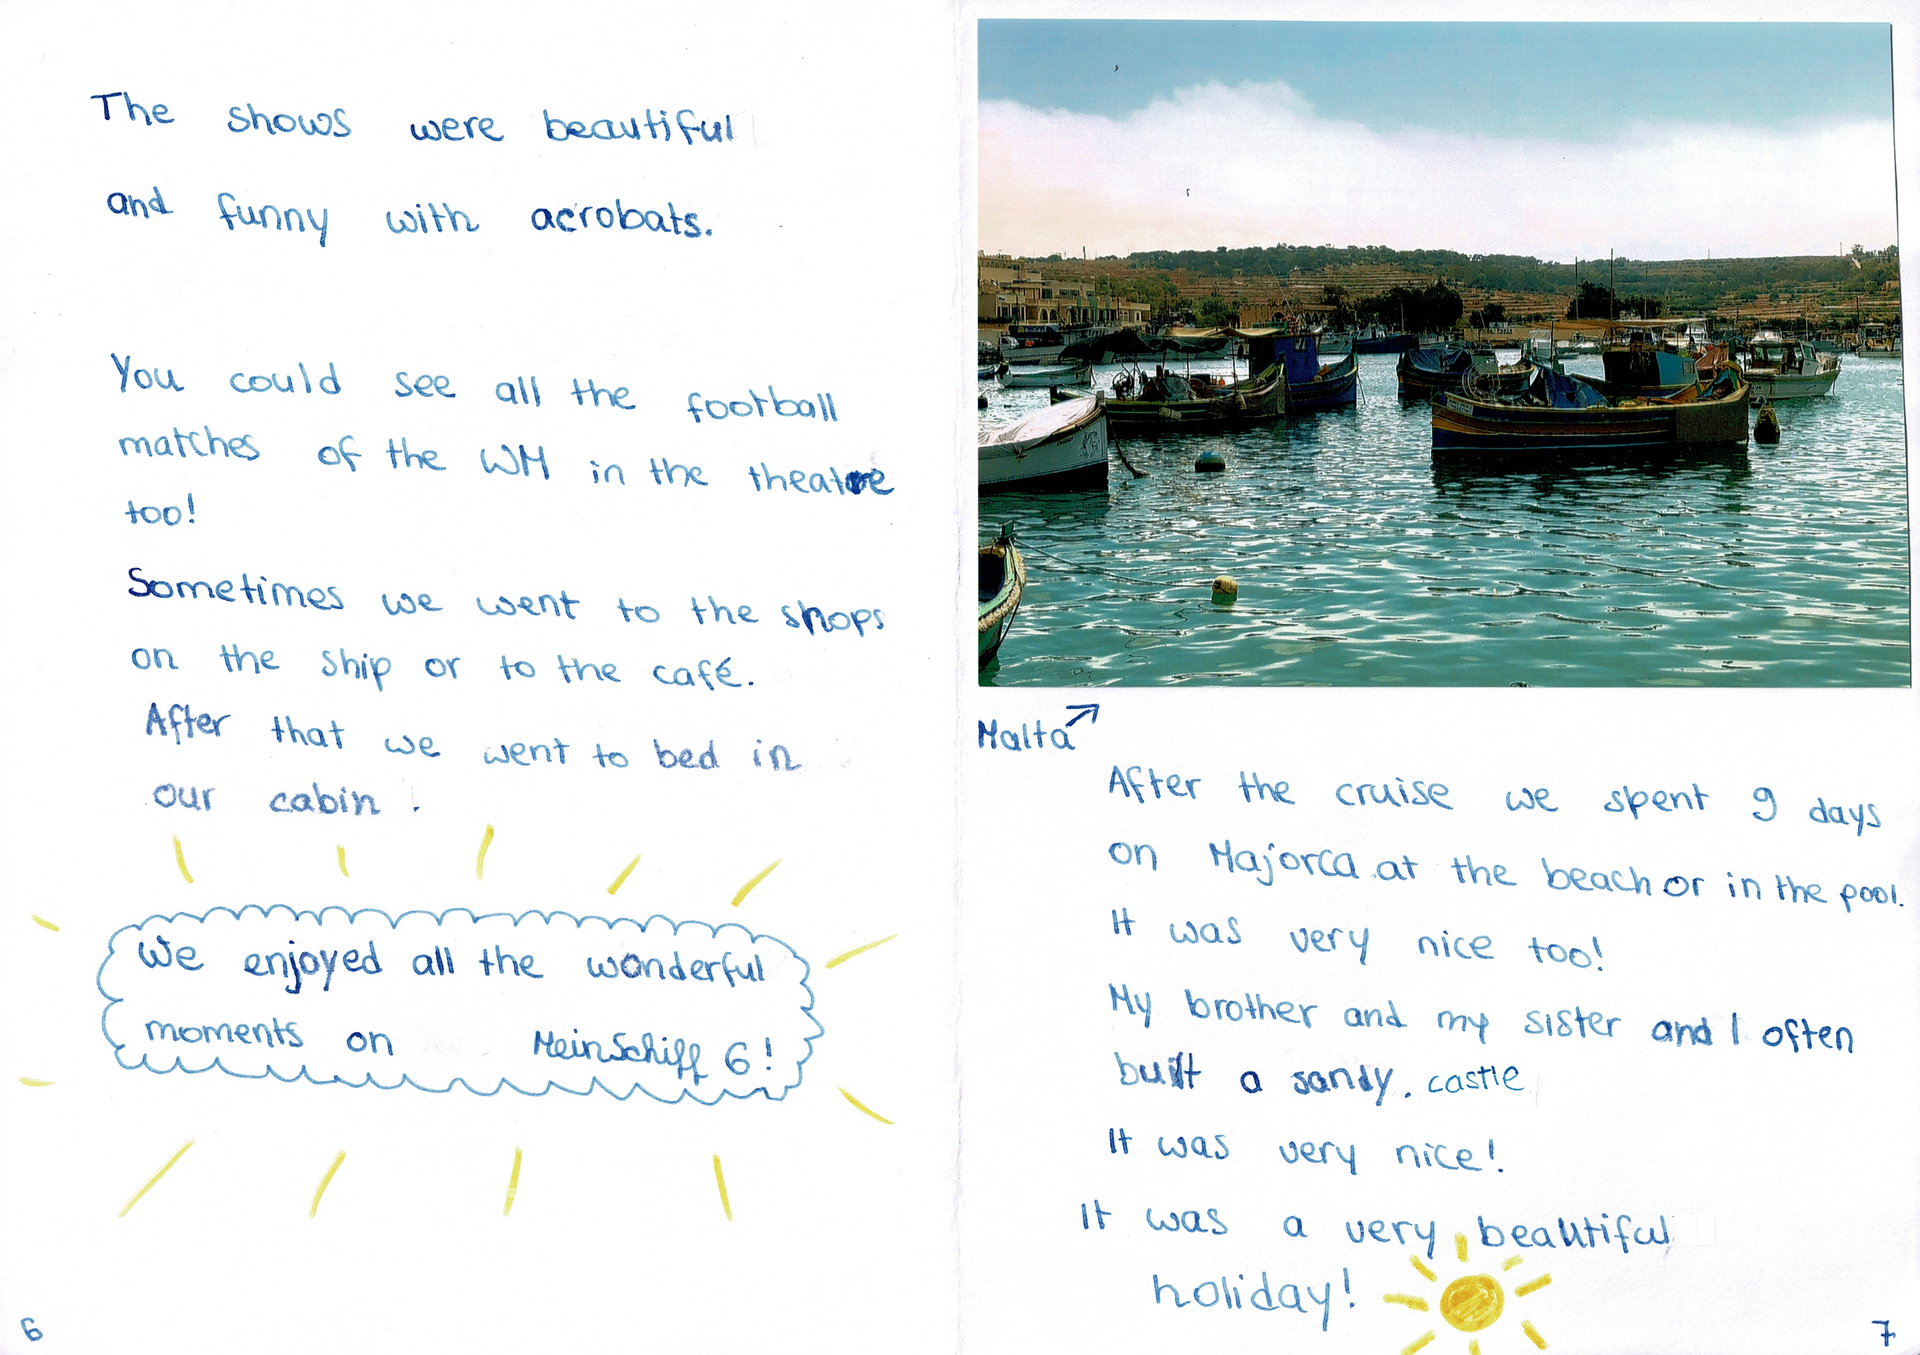 The shows were beautiful
and funny with acrobats.
You could see all the football
matches of the WM in the theatre
too!
Sometimes we went to the shops
on the ship or to the café.
After that we went to bed in
our cabin.
We enjoyed all the wonderful
moments on MeinSchiff 6!
6
Malta
After the cruise we spent 9 days
on Majorca at the beach or in the pool.
It was very nice too!
My brother and my sister and I often
built a sandy. castle
It was very nice!
It was a very beautiful
holiday!
7